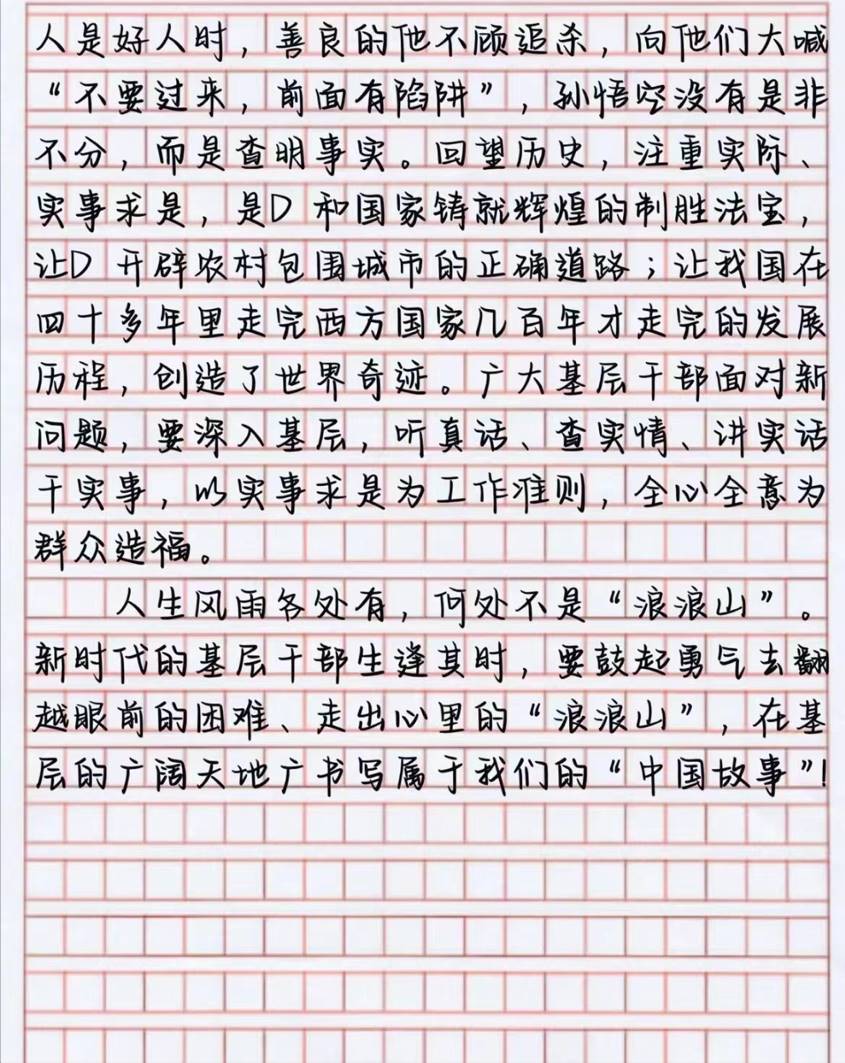 人是好人时，善良的他不顾追杀，向他们大喊
“不要过来，前面有陷阱”，孙悟空没有是非
不分，而是查明事实。回望历史，注重实际、
实事求是，是D 和国家铸就辉煌的制胜法宝，
让D 开辟农村包围城市的正确道路；让我国在
四十多年里走完西方国家几百年才走完的发展
历程，创造了世界奇迹。广大基层干部面对新
问题，要深入基层，听真话、查实情、讲实话
干实事，以实事求是为工作准则，全心全意为
群众造福。
人生风雨各处有，何处不是“浪浪山”。
新时代的基层干部生逢其时，要鼓起勇气去翻
越眼前的困难、走出心里的“浪浪山”，在基
层的广阔天地广书写属于我们的“中国故事”！